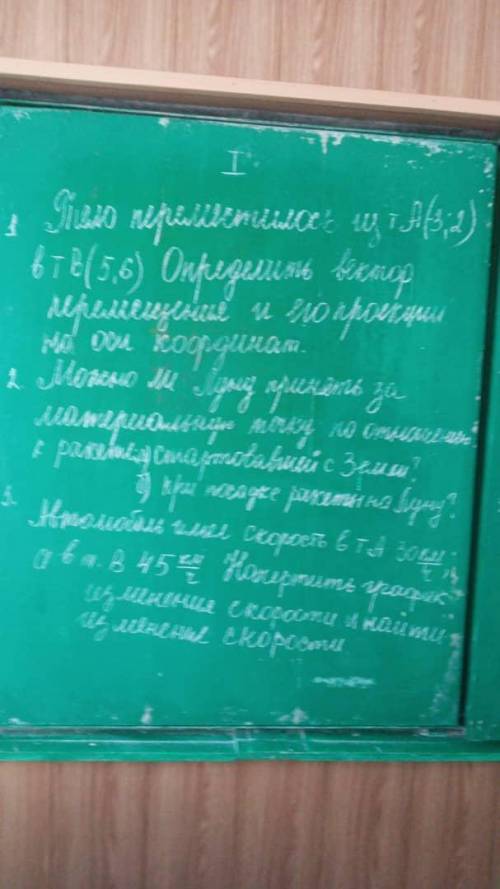 I
1 Тело переместилось из т А(3;2)
в т В(5,6) Определить вектор
перемещение и его проекции
на оси координат.
2. Можно ли Луну принять за
материальную точку по отношению
к ракете а) стартовавшей с Земли?
б) при посадке ракеты на Луну?
3. Автомобиль имел скорость в т А 30 км/ч,
а в т. В 45 км/ч Начертить график
изменение скорости и найти
изменение скорости